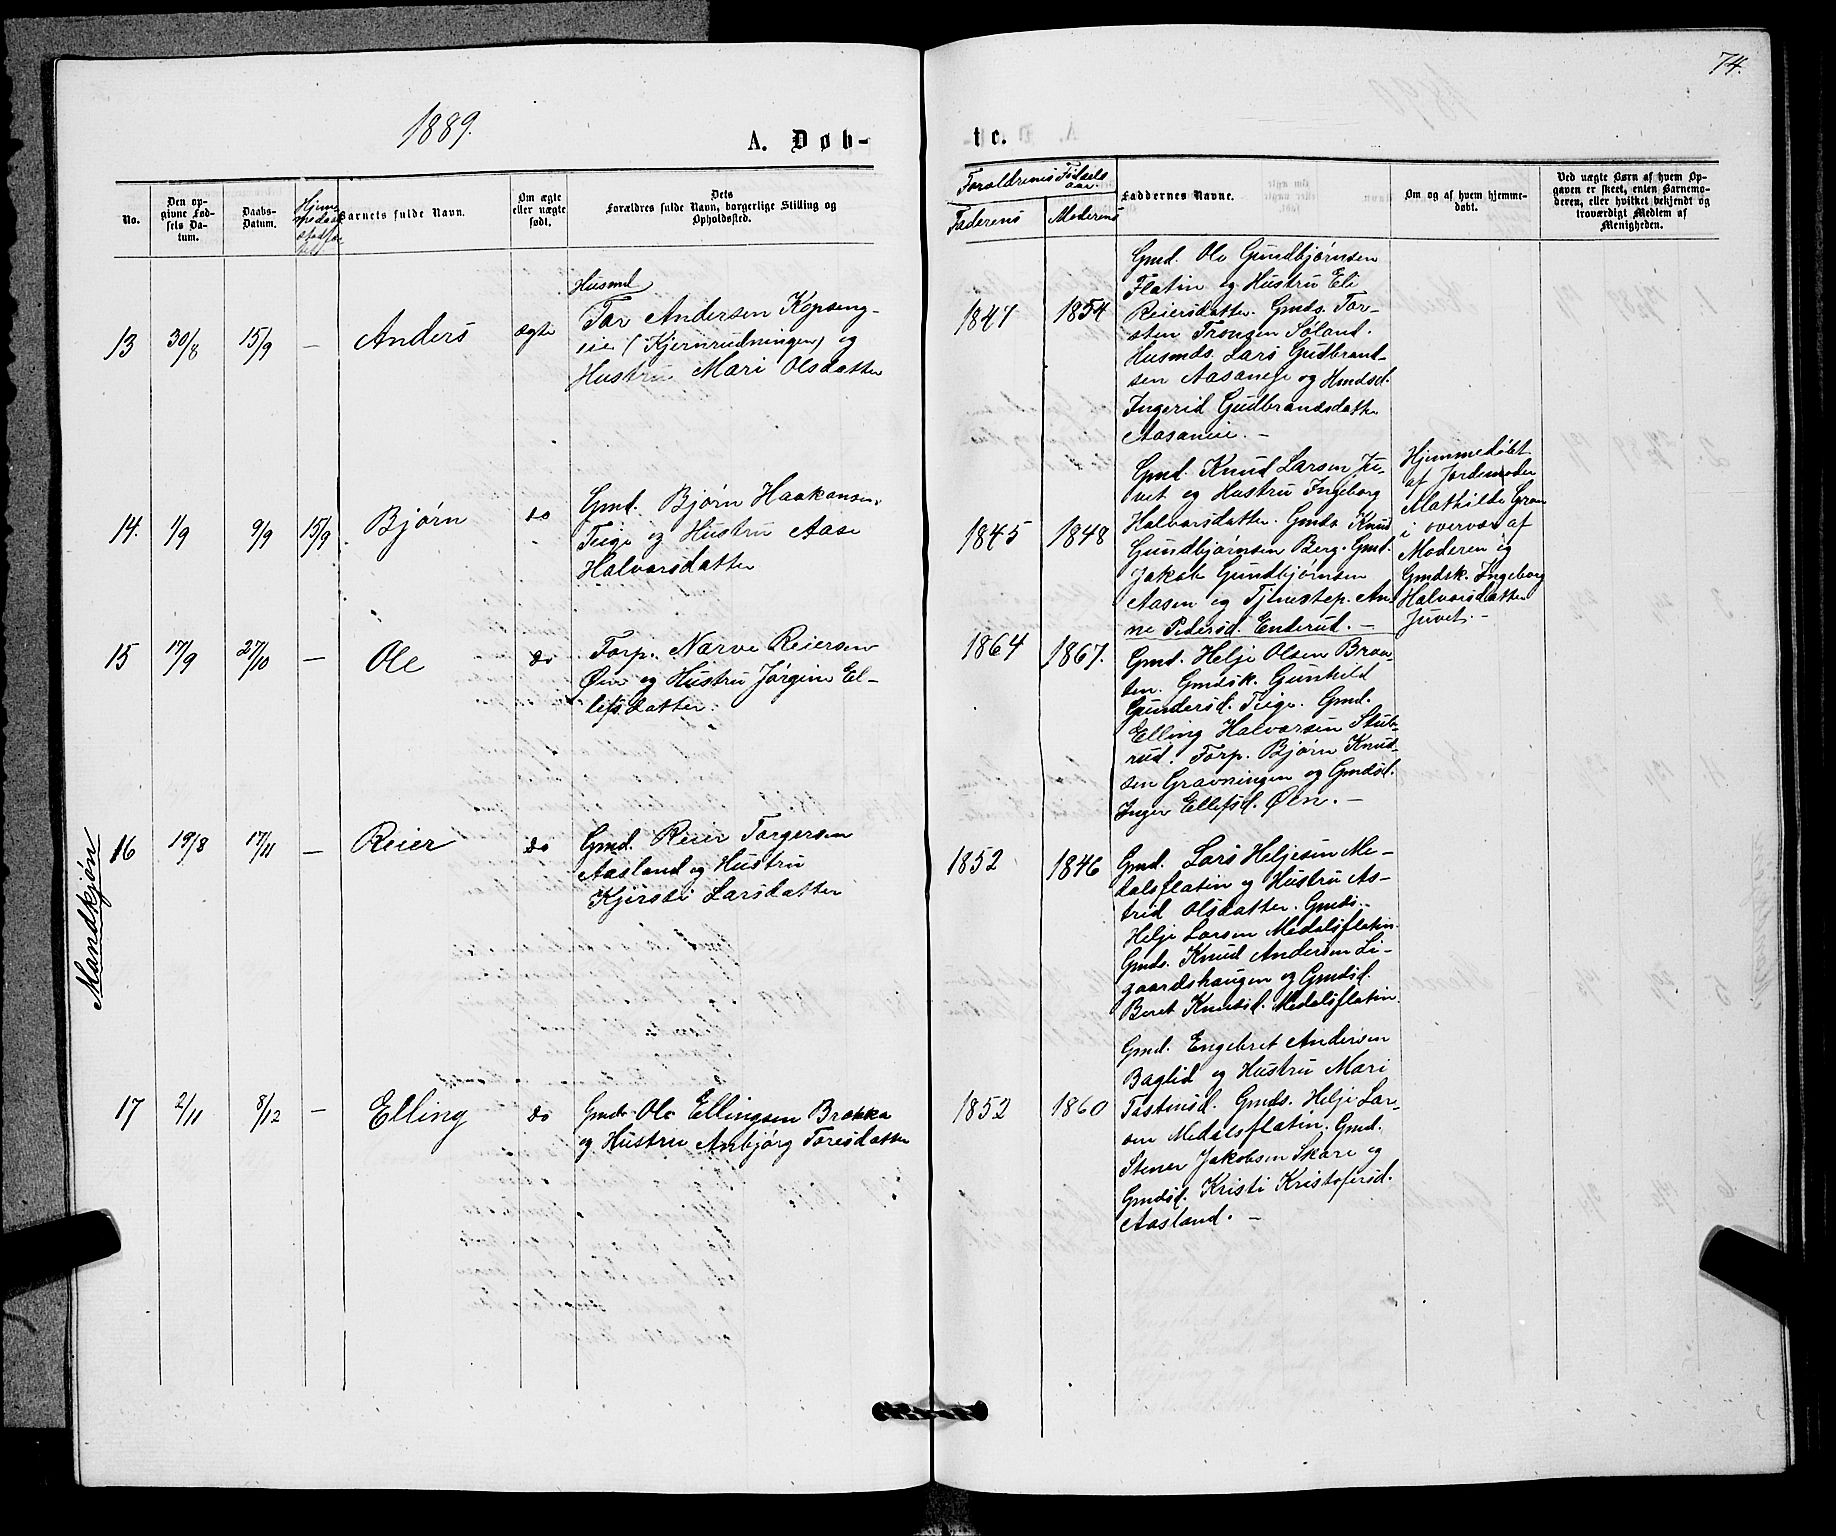 74.
1889.
A. Døb-
tc.
No.
Den op-
givne Fød-
sels Da-
tum.
Daabs-
Datum.
Barnets fulde Navn.
Om ægte
eller uægte
født.
Dets
Forældres fulde Navn, borgerlige Stilling og
Opholdssted.
Forældrenes Fødsels
aar.
Faderens
Moderens
Faddernes Navne.
Om og af hvem hjemme-
døbt.
Ved uægte Børn af hvem Op-
gaven er skeet, enten Barnemo-
deren, eller hvilket bekjendt og
troværdigt Medlem af
Menigheden.
Mandkjøn
13
30/8
15/9
—
Anders
ægte
Husmd
Tor Andersen Kopseng-
eie (Kjernrudningen) og
Hustru Mari Olsdatter
1847
1854
Gmd. Ole Gundbjørnsen
Flatin og Hustru Eli
Reiersdatter. Gmds. Tor-
sten Trongen Søland.
Husmds. Lars Gudbrand-
sen Aasaneie og Hmdsd.
Ingerid Gudbrandsdatter
Aasaneie. —
14.
1/9
9/9
15/9
Bjørn
do
Gmd. Bjørn Haakonsen
Teige og Hustru Aase
Halvorsdatter
1845
1848
Gmd. Knud Larsen Ju-
vet og Hustru Ingeborg
Halvorsdatter. Gmds Knud
Gundbjørnsen Berg. Gmd.
Jakob Gundbjørnsen
Aasen og Tjenestep. An-
ne Pedersd. Enderud. —
Hjemmedøbt
af Jordemoder
Mathilde Gran
i overvær af
Moderen og
Gmdsk. Ingeborg
Halvorsdatter
Juvet. —
15
17/9
27/10
—
Ole
do
Forp. Narve Reiersen
Øen og Hustru Jørgine El-
lefsdatter
1864
1867.
Gmd. Helje Olsen Braa-
ten. Gmdsk. Gunhild
Gundersd. Teige. Gmd.
Elling Halvorsen Stub-
rud. Forp. Bjørn Knud-
sen Gravningen og Gmdsd.
Inger Ellefsd. Øen. —
16
19/8
17/11
—
Reier
do
Gmd. Reier Torgersen
Aasland og Hustru
Kjersti Larsdatter
1852
1846
Gmd. Lars Heljesen Me-
dalsflatin og Hustru As-
trid Olsdatter. Gmds.
Helje Larsen Medalsflatin
Gmds. Knud Andersen Li-
gaardshaugen og Gmdsd.
Beret Knudsd. Medalsflatin.
17
2/11
8/12
—
Elling
do
Gmds Ole Ellingsen Brakka
og Hustru Anbjørg Toresdatter
1852
1860
Gmd. Engebret Andersen
Baglid og Hustru Mari
Tostensd. Gmds. Helje Lar-
sen Medalsflatin. Gmd.
Stener Jakobsen Skare og
Gmdsd. Kristi Kristofersd.
Aasland. —